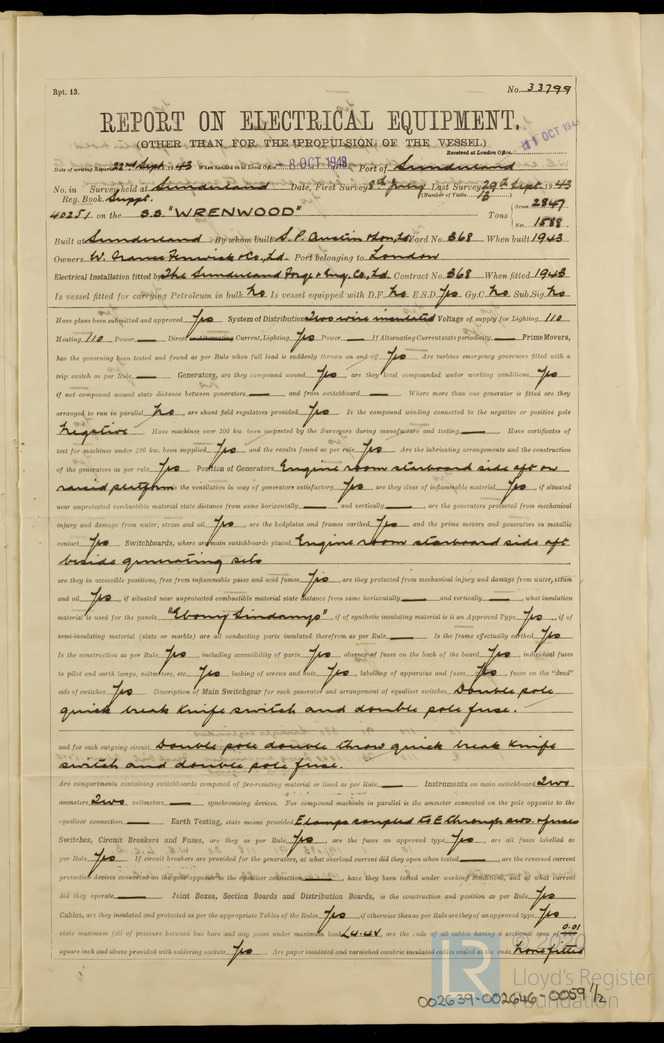 Rpt. 13.
No. 33799
REPORT ON ELECTRICAL EQUIPMENT.
(OTHER THAN FOR THE PROPULSION OF THE VESSEL)
11 OCT 194
Received at London Office
Date of writing Report 22nd Sept. 1943 When handed in at Local Office - 8 OCT 1943 Port of Sunderland
No. in Survey held at Sunderland Date, First Survey 8th July Last Survey 29th Sept. 1943
Reg. Book. Suppt. (Number of Visits 13)
40251 on the S.S. "WRENWOOD" Tons Gross 2847
Net 1588
Built at Sunderland By whom built S. P. Austin & Son, Ld. Yard No. 368 When built 1943
Owners W. France Fenwick & Co., Ld. Port belonging to London
Electrical Installation fitted by The Sunderland Forge & Eng. Co., Ld. Contract No. 368 When fitted 1943
Is vessel fitted for carrying Petroleum in bulk No Is vessel equipped with D.F. No E.S.D. Yes Gy.C. No Sub.Sig. No
Have plans been submitted and approved Yes System of Distribution Two wire insulated Voltage of supply for Lighting 110
Heating 110 Power — Direct or Alternating Current, Lighting Yes Power — If Alternating Current state periodicity — Prime Movers,
has the governing been tested and found as per Rule when full load is suddenly thrown on and off Yes Are turbine emergency governors fitted with a
trip switch as per Rule — Generators, are they compound wound Yes are they level compounded under working conditions Yes
if not compound wound state distance between generators — and from switchboard — Where more than one generator is fitted are they
arranged to run in parallel No, are shunt field regulators provided Yes Is the compound winding connected to the negative or positive pole
Negative Have machines over 200 kw. been inspected by the Surveyors during manufacture and testing — Have certificates of
test for machines under 200 kw. been supplied Yes and the results found as per rule Yes Are the lubricating arrangements and the construction
of the generators as per rule Yes Position of Generators Engine room starboard side aft on
raised platform is the ventilation in way of generators satisfactory Yes are they clear of inflammable material Yes, if situated
near unprotected combustible material state distance from same horizontally — and vertically —, are the generators protected from mechanical
injury and damage from water, steam and oil Yes, are the bedplates and frames earthed Yes and the prime movers and generators in metallic
contact Yes Switchboards, where are main switchboards placed Engine room starboard side aft
beside generating sets
are they in accessible positions, free from inflammable gases and acid fumes Yes, are they protected from mechanical injury and damage from water, steam
and oil Yes, if situated near unprotected combustible material state distance from same horizontally — and vertically —, what insulation
material is used for the panels "Ebony Sindanyo", if of synthetic insulating material is it an Approved Type Yes, if of
semi-insulating material (slate or marble) are all conducting parts insulated therefrom as per Rule — Is the frame effectually earthed Yes
Is the construction as per Rule Yes, including accessibility of parts Yes, absence of fuses on the back of the board Yes, individual fuses
to pilot and earth lamps, voltmeters, etc. Yes locking of screws and nuts Yes, labelling of apparatus and fuses Yes, fuses on the "dead"
side of switches Yes Description of Main Switchgear for each generator and arrangement of equaliser switches Double pole
quick break knife switch and double pole fuse.
and for each outgoing circuit Double pole double throw quick break knife
switch and double pole fuse.
Are compartments containing switchboards composed of fire-resisting material or lined as per Rule — Instruments on main switchboard Two
ammeters Two voltmeters — synchronising devices. For compound machines in parallel is the ammeter connected on the pole opposite to the
equaliser connection — Earth Testing, state means provided E lamps coupled to E through sws. & fuses
Switches, Circuit Breakers and Fuses, are they as per Rule Yes, are the fuses an approved type Yes, are all fuses labelled as
per Rule Yes If circuit breakers are provided for the generators, at what overload current did they open when tested —, are the reversed current
protection devices connected on the pole opposite to the equaliser connection —, have they been tested under working conditions, and at what current
did they operate — Joint Boxes, Section Boards and Distribution Boards, is the construction and position as per Rule Yes
Cables, are they insulated and protected as per the appropriate Tables of the Rules Yes, if otherwise than as per Rule are they of an approved type Yes,
state maximum fall of pressure between bus bars and any point under maximum load 4.4V are the ends of all cables having a sectional area of 0.01
square inch and above provided with soldering sockets Yes Are paper insulated and varnished cambric insulated cables sealed at the ends None fitted
LR © 2020
Lloyd's Register
Foundation
002639-002646-0059 1/2